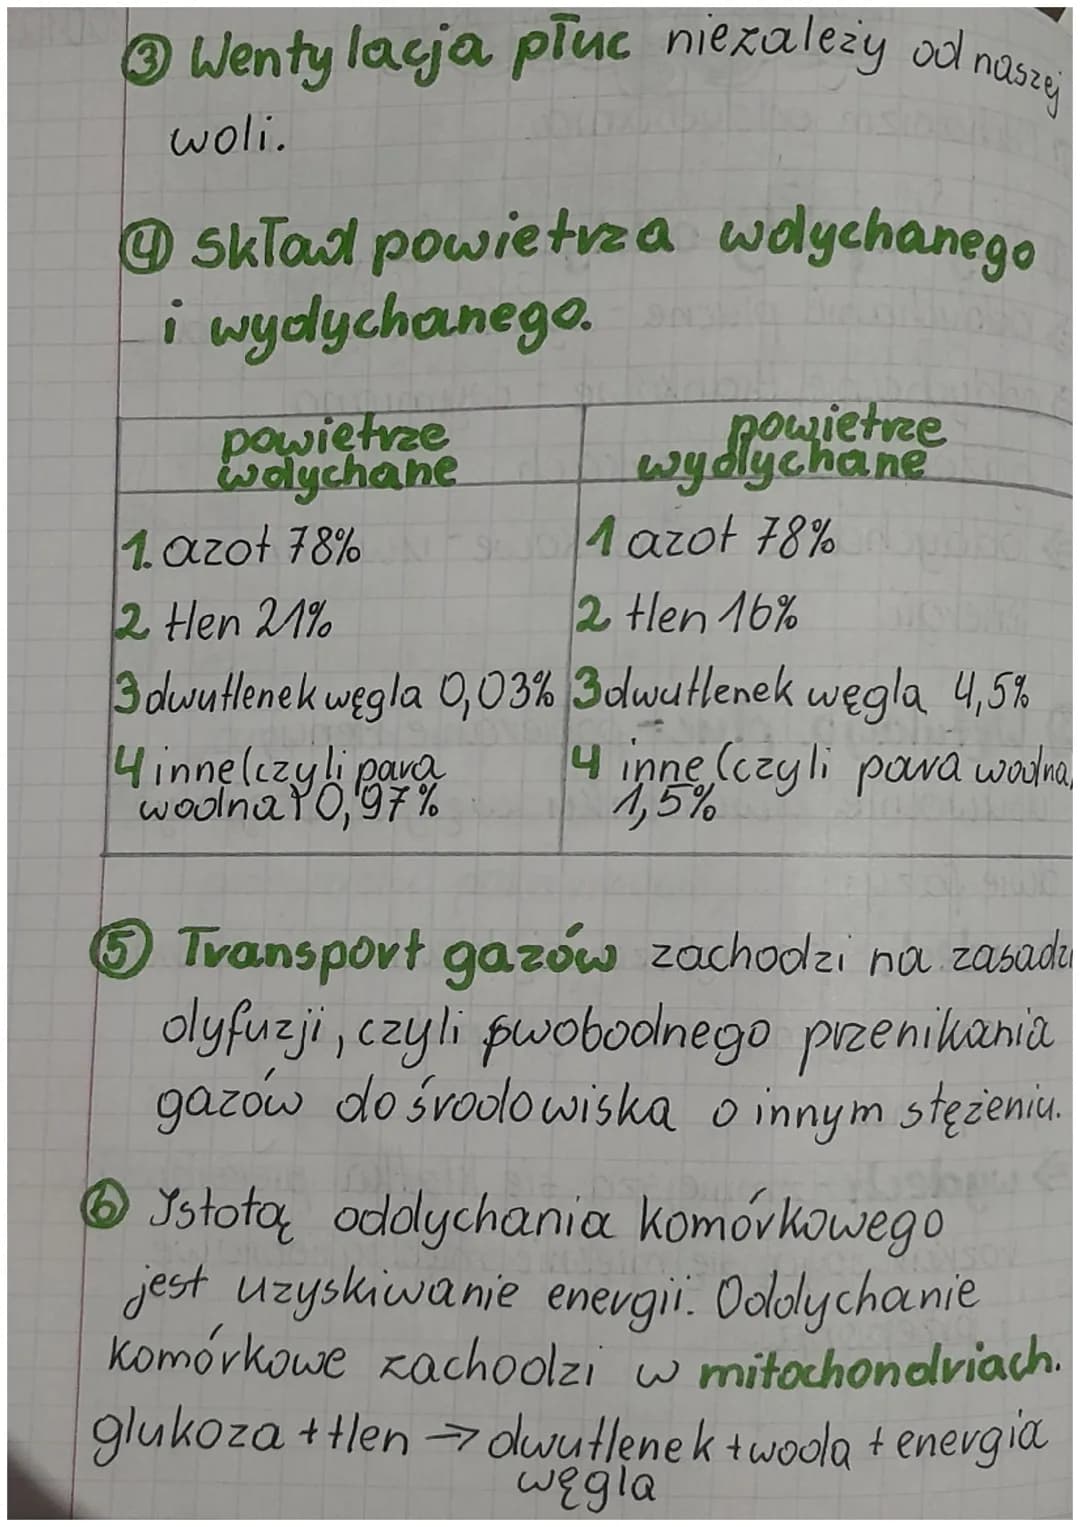 ③ Wentylacja płuc niezależy od naszej
woli.
④ Skład powietrza wdychanego
i wydychanego.
powietrze wdychane
powietrze wydychane
1. azot 78%
1 azot 78%
2 tlen 21%
2 tlen 16%
3 dwutlenek węgla 0,03%
3 dwutlenek węgla 4,5%
4 inne (czyli para
wodna) 0,97%
4 inne (czyli para wodna,
1,5%
⑤ Transport gazów zachodzi na zasadzi
dyfuzji, czyli swobodnego przenikania
gazów do środowiska o innym stężeniu.
⑥ Istotą oddychania komórkowego
jest uzyskiwanie energii. Oddychanie
komórkowe zachodzi w mitochondriach.
glukoza + tlen → dwutlenek + woda + energia
węgla